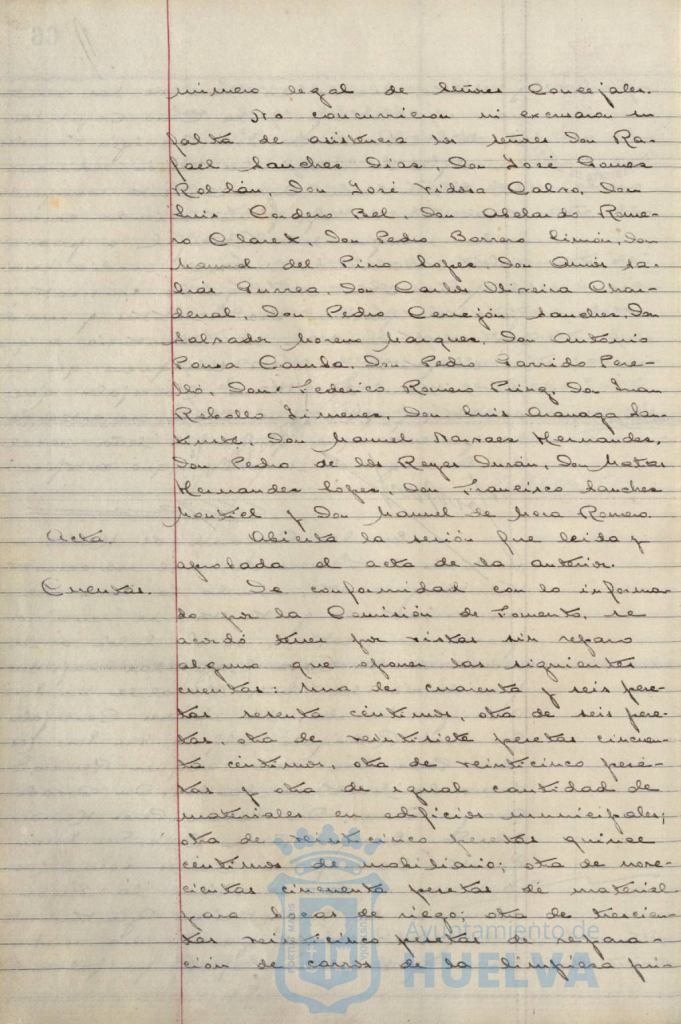 número legal de señores Concejales.
No concurrieron ni excusaron su
falta de asistencia los señores Don Ra-
fael Sanchez Diaz, Don José Gomez
Roldán, Don José Vidosa Calvo, Don
Luis Cordero Bel, Don Abelardo Rome-
ro Claret, Don Pedro Borrero Limón, Don
Manuel del Pino Lopez, Don Amós Sa-
brás Gurrea, Don Carlos Oliveira Chor-
denal, Don Pedro Cerrejón Sanchez, Don
Salvador Moreno Marquez, Don Antonio
Ponsa Camba, Don Pedro Garrido Pere-
lló, Don Federico Romero Don Juan
Rebollo Jimenez, Don Luis
Don Manuel Narvaez Hernandez,
Don Pedro de los Reyes Durán, Don Matias
Hernandez Lopez, Don Francisco Sanchez
Montiel y Don Manuel de Mora Romero.
Acta. Abierta la sesión fue leida y
aprobada el acta de la anterior.
Cuentas. De conformidad con lo informa-
do por la Comisión de Fomento, se
acordó tener por vistas sin reparo
alguno que oponer las siguientes
cuentas: Una de cuarenta y seis pese-
tas sesenta céntimos, otra de seis pese-
tas, otra de veintisiete pesetas cincuen-
ta céntimos, otra de veinticinco pese-
tas y otra de igual cantidad de
materiales en edificios municipales;
otra de veinticinco pesetas quince
céntimos de mobiliario; otra de nove-
cientas cincuenta pesetas de material
para bocas de riego; otra de trescien-
tas veinticinco pesetas de repara-
ción de carros de la limpieza pú-
Ayuntamiento de
HUELVA